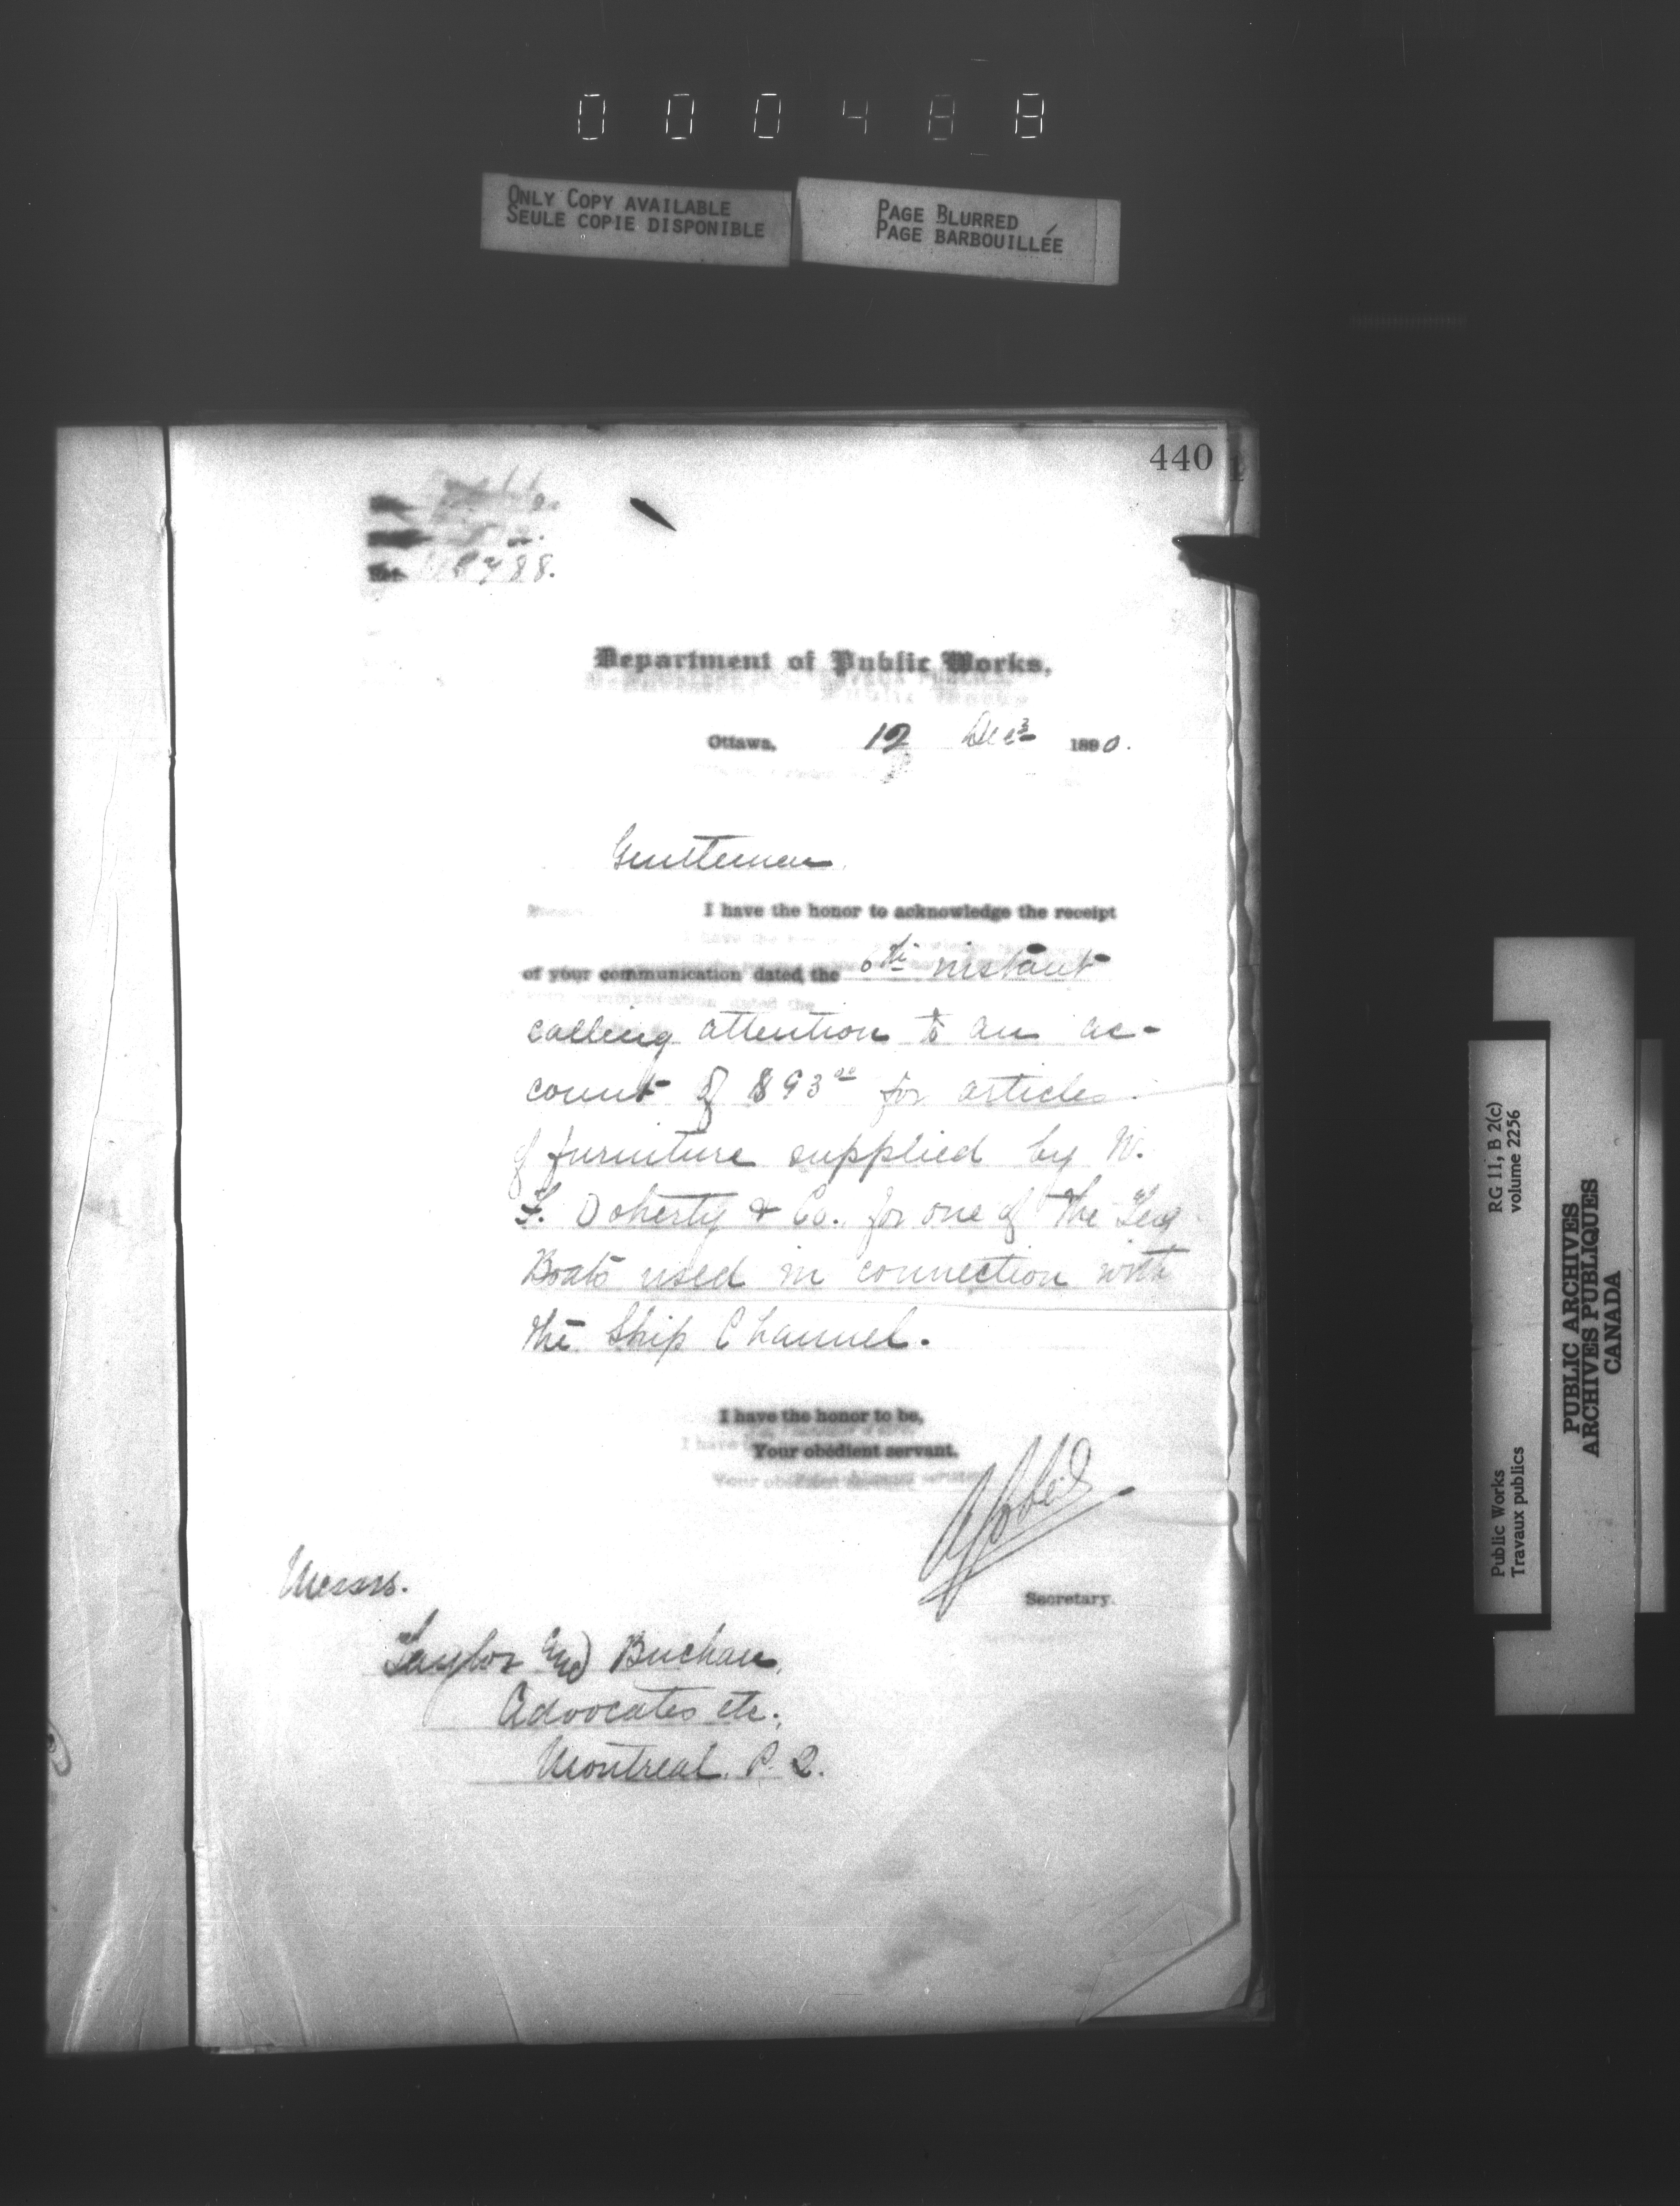 000488
ONLY COPY AVAILABLE
SEULE COPIE DISPONIBLE
PAGE BLURRED
PAGE BARBOUILLÉE
440
88.
Department of Public Works.
Ottawa, 12 Decr 1890.
Gentlemen
I have the honor to acknowledge the receipt
of your communication dated the 6th instant
calling attention to an ac-
count of $93 00 for articles
of furniture supplied by W.
F. Doherty & Co. for one of the Tug
Boats used in connection with
the Ship Channel.
I have the honor to be,
Your obedient servant.
Secretary.
Messrs.
Taylor and Buchan,
Advocates etc.,
Montreal. P. Q.
RG 11, B 2(c)
volume 2256
Public Works
Travaux publics
PUBLIC ARCHIVES
ARCHIVES PUBLIQUES
CANADA